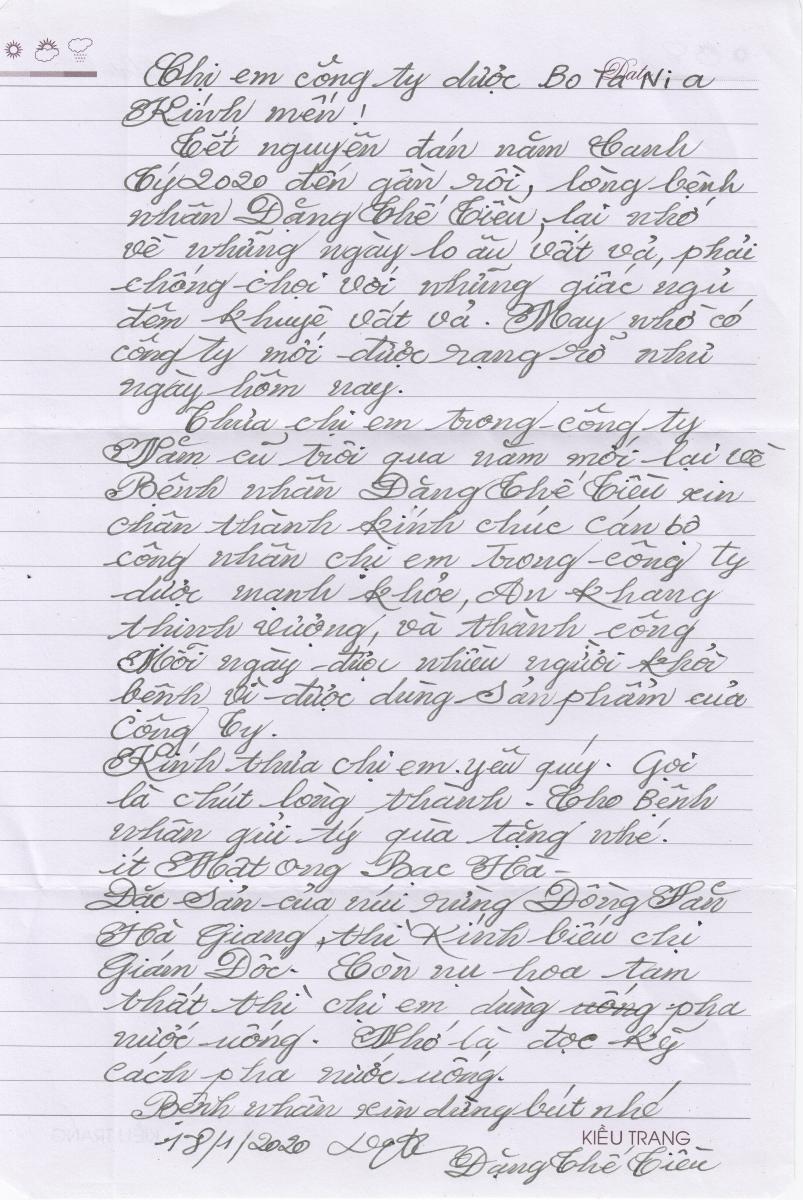 Chị em công ty dược Bo Ta Ni a
Date
Kính mến!
Tết nguyên đán năm Canh
Tý 2020 đến gần rồi, lòng bệnh
nhân Đặng Thế Tiều, lại nhớ
về những ngày lo âu vất vả, phải
chống chọi với những giấc ngủ
đêm khuyê vất vả. May nhờ có
công ty mới được rạng rỡ như
ngày hôm nay.
Thưa chị em trong công ty
Năm cũ trôi qua năm mới lại về
Bệnh nhân Đặng Thế Tiều xin
chân thành kính chúc cán bô
công nhân chị em trong công ty
dược mạnh khỏe, An khang
thịnh vượng, và thành công
Mỗi ngày được nhiều người khỏi
bệnh vì được dùng sản phẩm của
Công Ty.
Kính thưa chị em yêu quý. Gọi
là chút lòng thành. Cho Bệnh
nhân gửi tý quà tặng nhé.
ít Mật ong Bạc Hà -
Đặc sản của núi rừng Đồng Văn
Hà Giang, thì Kính biếu chị
Giám Đốc. Còn nụ hoa tam
thất thì chị em dùng uống pha
nước uống. Nhớ là đọc kỹ
cách pha nước uống.
Bệnh nhân xin dừng bút nhé
18/1/2020
KIỀU TRANG
Đặng Thế Tiều